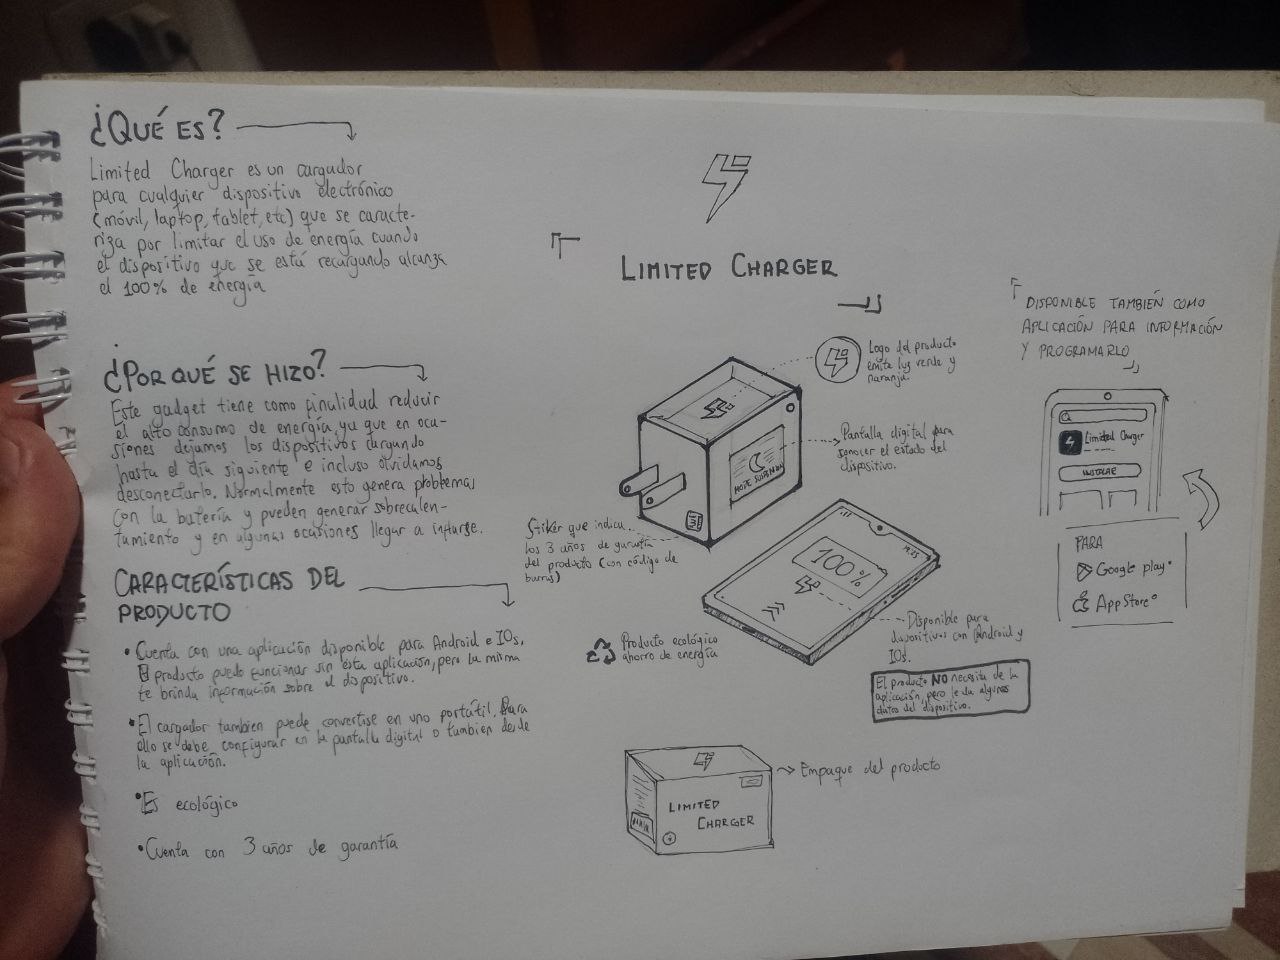 ¿QUÉ ES?
Limited Charger es un cargador
para cualquier dispositivo electrónico
(móvil, laptop, tablet, etc) que se caracte-
riza por limitar el uso de energía cuando
el dispositivo que se está recargando alcanza
el 100% de energía
¿POR QUÉ SE HIZO?
Este gadget tiene como finalidad reducir
el alto consumo de energía, ya que en oca-
siones dejamos los dispositivos cargando
hasta el día siguiente e incluso olvidamos
desconectarlo. Normalmente esto genera problemas
con la batería y pueden generar sobrecalen-
tamiento y en algunas ocasiones llegar a inflarse.
CARACTERÍSTICAS DEL
PRODUCTO
• Cuenta con una aplicación disponible para Android e IOs.
El producto puede funcionar sin esta aplicación, pero la misma
te brinda información sobre el dispositivo.
• El cargador tambien puede convertise en uno portátil. Para
ello se debe configurar en la pantalla digital o tambien desde
la aplicación.
• Es ecológico
• Cuenta con 3 años de garantía
LIMITED CHARGER
Logo del producto
emite luz verde y
naranja.
Pantalla digital para
conocer el estado del
dispositivo.
MODE SUSPENDU
Stiker que indica
los 3 años de garantía
del producto (con código de
barras)
100%
Producto ecológico
ahorro de energía
Disponible para
dispositivos con Android y
IOs.
El producto NO necesita de la
aplicación, pero le da algunos
datos del dispositivo.
LIMITED
CHARGER
Empaque del producto
DISPONIBLE TAMBIÉN COMO
APLICACIÓN PARA INFORMACIÓN
Y PROGRAMARLO
Limited Charger
INSTALAR
PARA
Google play
AppStore